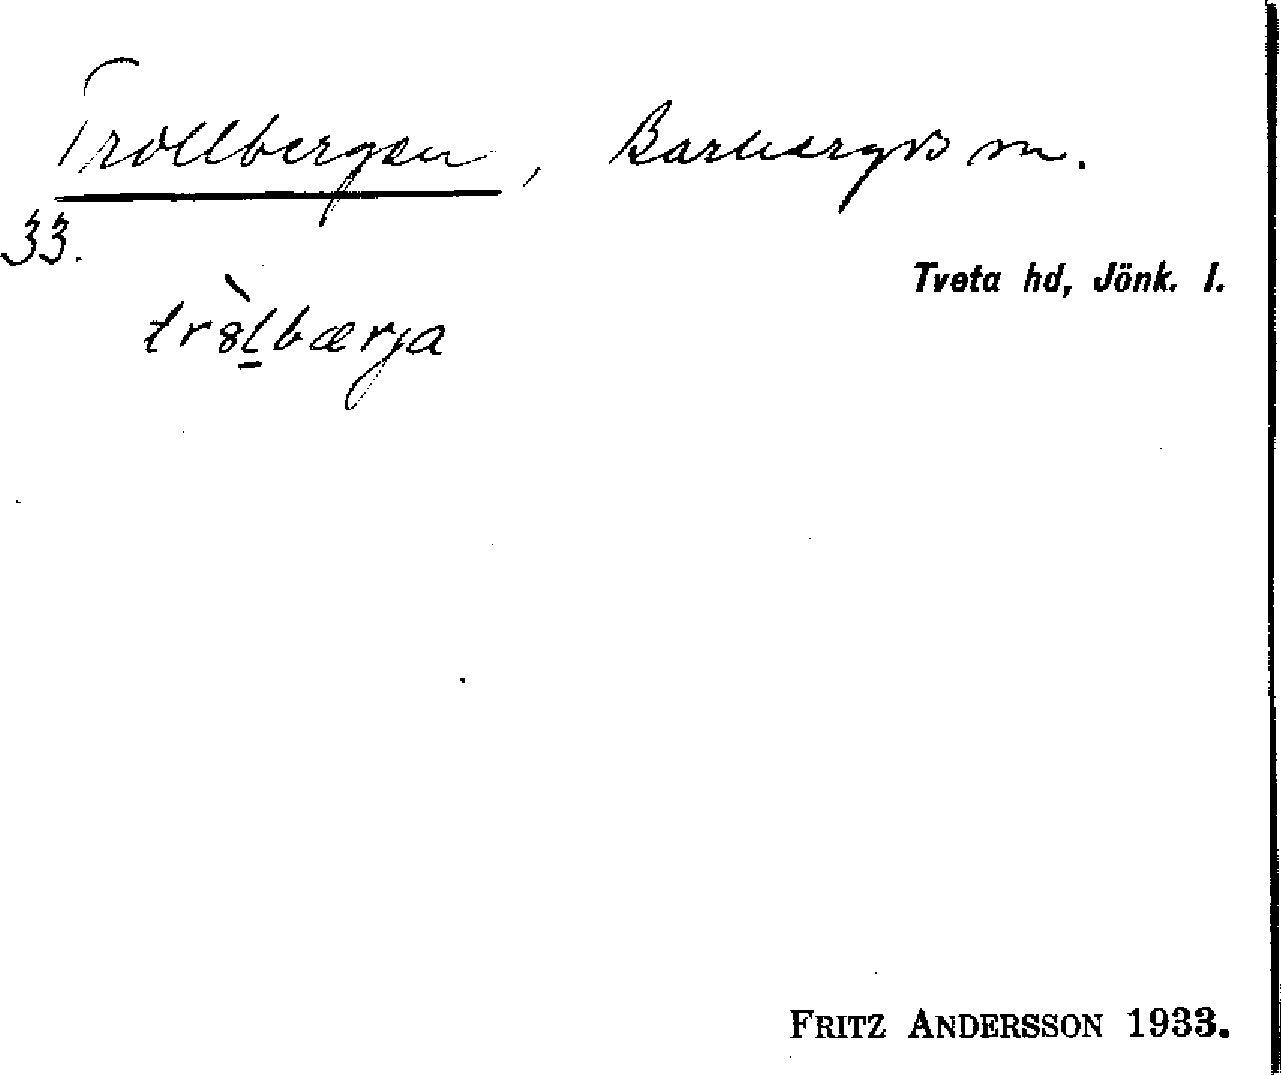 Trollbergen, Barkeryds sn.
33.
Tveta hd, Jönk. l.
tròlbærja
FRITZ ANDERSSON 1933.